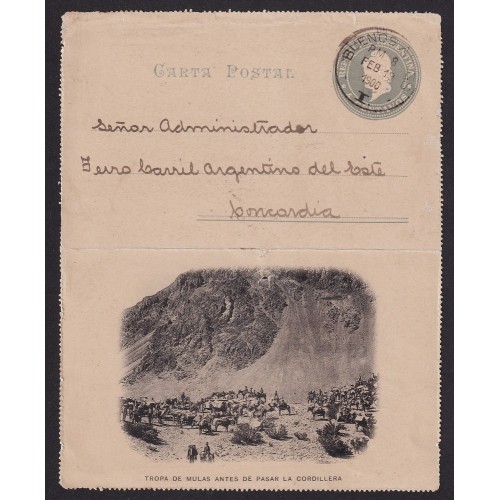 CARTA POSTAL
BUENOS
PM 8
FEB 19
1900
I
Señor Administrador
Ferro Carril Argentino del Este
Concordia
TROPA DE MULAS ANTES DE PASAR LA CORDILLERA